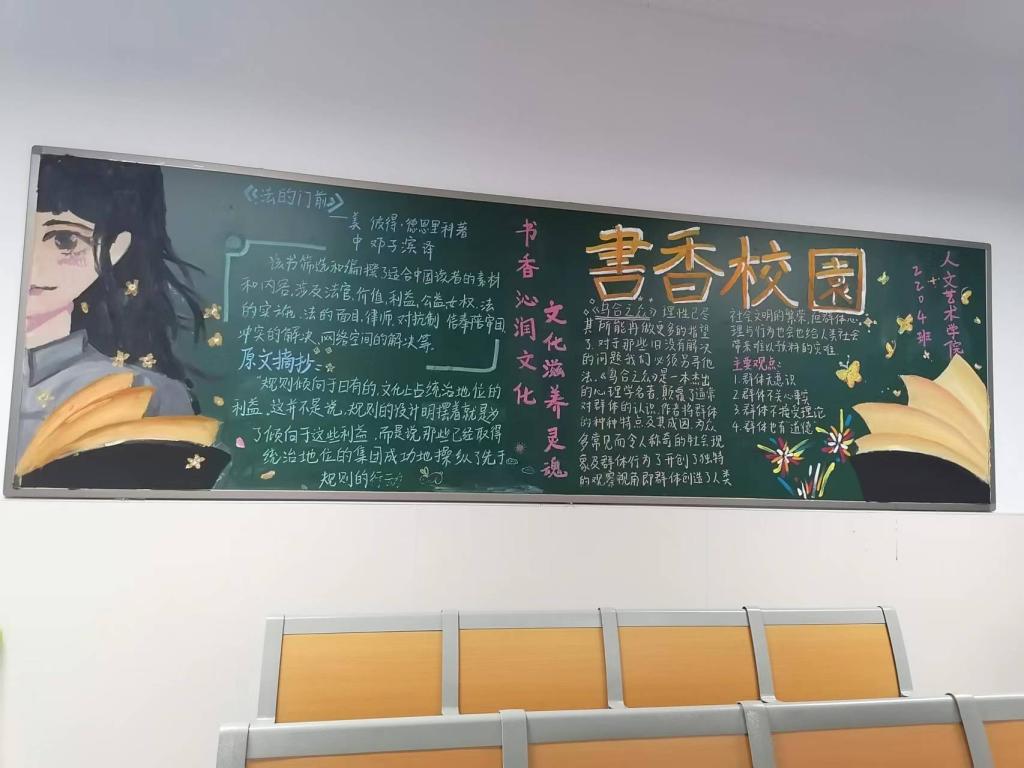 《法的门前》
——美 彼得·德恩里科著
中 邓子滨 译
该书筛选和编撰了适合中国读者的素材
和内容,涉及法官,价值,利益,公益,女权,法
的实施,法的面目,律师,对抗制,陪审团
冲突的解决,网络空间的解决等.
原文摘抄:
"规则倾向于已有的,文化上占统治地位的
利益.这并不是说,规则的设计明摆着就是为
了倾向于这些利益,而是说那些已经取得
统治地位的集团成功地操纵了先于
规则的行动
书香沁润文化
文化滋养灵魂
書香校園
《乌合之众》理性已尽
其所能再做更多的指望
了,对于那些旧没有解决
的问题我们必须另寻他
法.《乌合之众》是一本杰出
的心理学名著,颠覆了通常
对群体的认识,作者将群体
的种种特点及其成因为众
多常见而令人称奇的社会现
象及群体行为了开创了独特
的观察视角即群体创造了人类
社会文明的繁荣,但群体心
理与行为也会也给人类社会
带来难以预料的灾难
主要观点:
1.群体无意识
2.群体不关心事实
3.群体不接受理论
4.群体也有道德
人文艺术学院
2204班